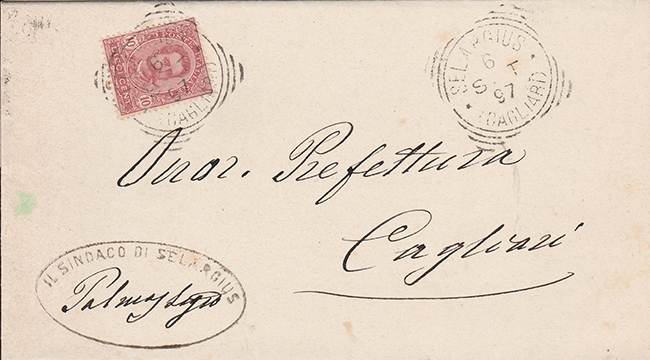 POSTE ITALIANE
10
10
(CAGLIARI)
SELARGIUS
6
97
(CAGLIARI)
Onor. Prefettura
Cagliari
IL SINDACO DI SELARGIUS